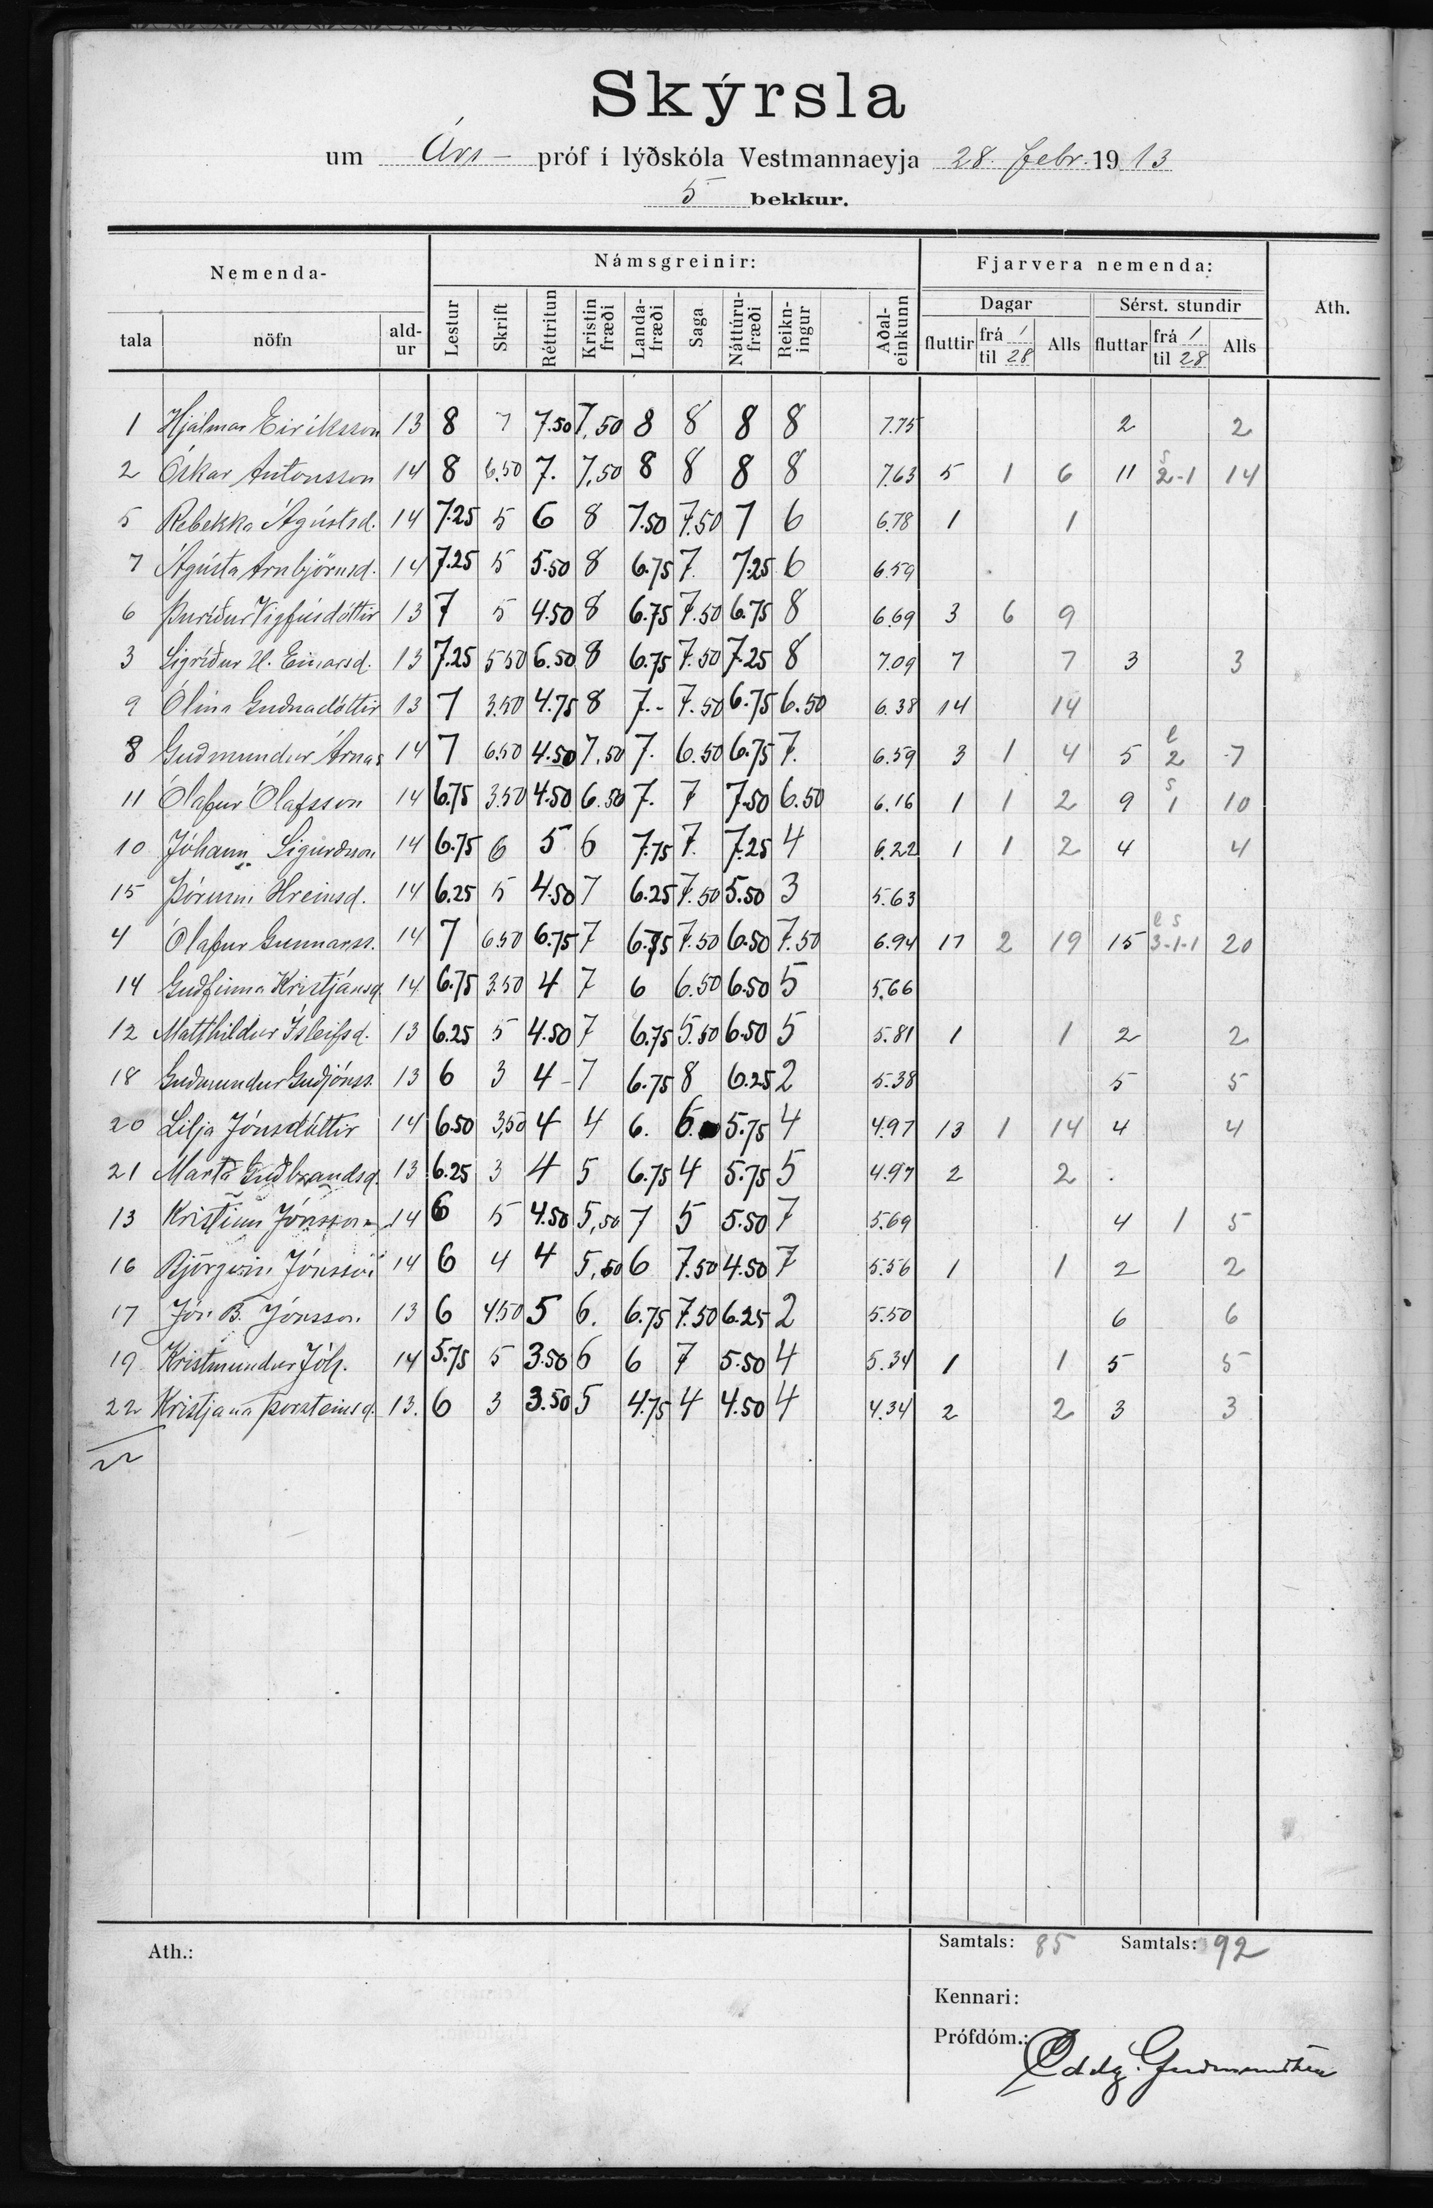 Skýrsla
um Árs- próf í lýðskóla Vestmannaeyja 28. febr. 1913
5 bekkur.
Nemenda- Námsgreinir: Fjarvera nemenda: Ath.
Dagar Sérst. stundir
tala nöfn ald-ur Lestur Skrift Réttritun Kristin fræði Landa-fræði Saga Náttúru-fræði Reikn-ingur Aðal-einkunn fluttir frá 1 til 28 Alls fluttar frá 1 til 28 Alls
1 Hjálmar Eiríksson 13 8 7 7.50 7,50 8 8 8 8 7.75 2 2
2 Óskar Antonsson 14 8 6.50 7. 7,50 8 8 8 8 7.63 5 1 6 11 s 2-1 14
5 Rebekka Ágústsd. 14 7.25 5 6 8 7.50 7.50 7 6 6.78 1 1
7 Ágústa Arnbjörnsd. 14 7.25 5 5.50 8 6.75 7. 7.25 6 6.59
6 Þuríður Vigfúsdóttir 13 7 5 4.50 8 6.75 7.50 6.75 8 6.69 3 6 9
3 Sigríður H. Einarsd. 13 7.25 5.50 6.50 8 6.75 7.50 7.25 8 7.09 7 7 3 3
9 Ólína Guðnadóttir 13 7 3.50 4.75 8 7.- 7.50 6.75 6.50 6.38 14 14
8 Guðmundur Árnas 14 7 6.50 4.50 7,50 7. 6.50 6.75 7. 6.59 3 1 4 5 l 2 7
11 Ólafur Ólafsson 14 6.75 3.50 4.50 6.50 7. 7 7.50 6.50 6.16 1 1 2 9 s 1 10
10 Jóhann Sigurðsson 14 6.75 6 5 6 7.75 7. 7.25 4 6.22 1 1 2 4 4
15 Þórunn Hreinsd. 14 6.25 5 4.50 7 6.25 7.50 5.50 3 5.63
4 Ólafur Gunnarss. 14 7 6.50 6.75 7 6.75 7.50 6.50 7.50 6.94 17 2 19 15 l s 3-1-1 20
14 Guðfinna Kristjánsd. 14 6.75 3.50 4 7 6 6.50 6.50 5 5.66
12 Matthildur Ísleifsd. 13 6.25 5 4.50 7 6.75 5.50 6.50 5 5.81 1 1 2 2
18 Guðmundur Guðjónss. 13 6 3 4 - 7 6.75 8 6.25 2 5.38 5 5
20 Lilja Jónsdóttir 14 6.50 3,50 4 4 6. 6. 5.75 4 4.97 13 1 14 4 4
21 Marta Guðbrandsd. 13 6.25 3 4 5 6.75 4 5.75 5 4.97 2 2
13 Kristinn Jónsson 14 6 5 4.50 5,50 7 5 5.50 7 5.69 4 1 5
16 Björgvin Jónsson 14 6 4 4 5,50 6 7.50 4.50 7 5.56 1 1 2 2
17 Jón B. Jónsson 13 6 4.50 5 6. 6.75 7.50 6.25 2 5.50 6 6
19 Kristmundur Jóh. 14 5.75 5 3.50 6 6 7 5.50 4 5.34 1 1 5 5
22 Kristjana Þorsteinsd. 13. 6 3 3.50 5 4.75 4 4.50 4 4.34 2 2 3 3
22
Ath.: Samtals: 85 Samtals: 92
Kennari:
Prófdóm.: Oddg. Guðmundsen